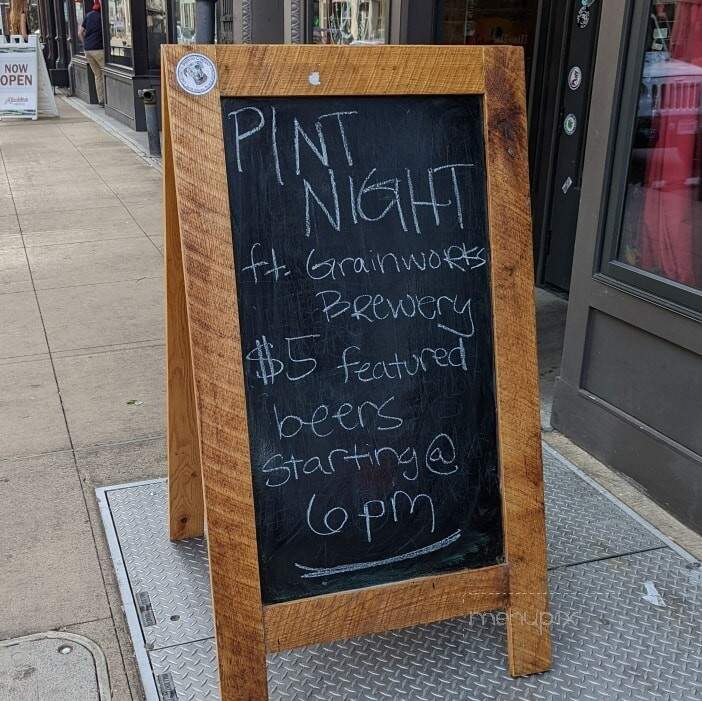 NOW
OPEN
PINT
NIGHT
ft. Grainworks
Brewery
$5 featured
beers
Starting @
6pm
menupix